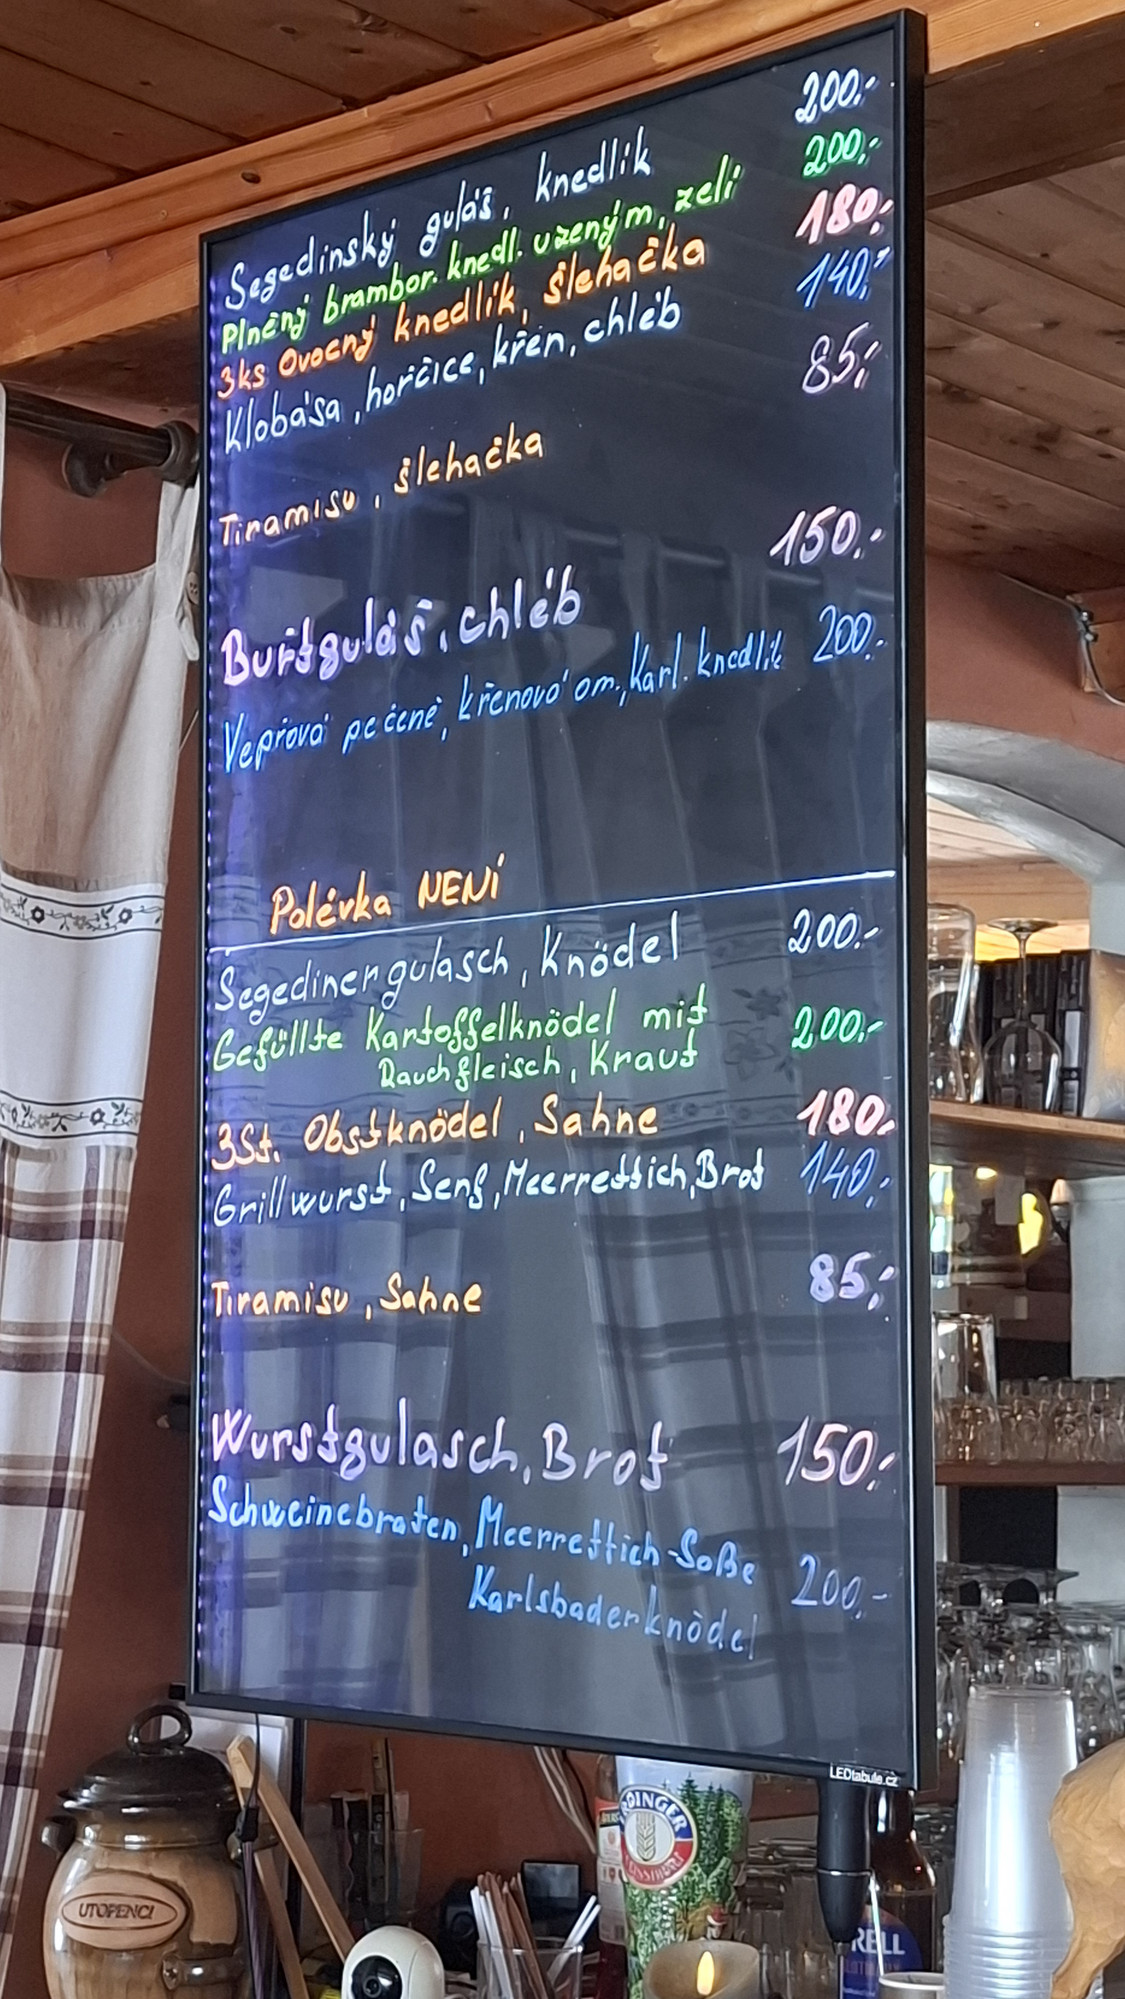 Segedínský guláš, knedlík 200.-
Plněný brambor. knedl. uzeným, zelí 200,-
3ks Ovocný knedlík, šlehačka 180,-
Klobása, hořčice, křen, chléb 140,-
Tiramisu, šlehačka 85,-
Buřtguláš, chléb 150.-
Vepřová pečeně, křenová om., Karl. knedlík 200.-
Polévka NENÍ
Segedinergulasch, Knödel 200.-
Gefüllte Kartoffelknödel mit 200.-
Rauchfleisch, Kraut
3St. Obstknödel, Sahne 180.
Grillwurst, Senf, Meerrettich, Brot 140,-
Tiramisu, Sahne 85,-
Wurstgulasch, Brot 150,-
Schweinebraten, Meerrettich-Soße
Karlsbaderknödel 200,-
LEDtabule.cz
UTOPENCI